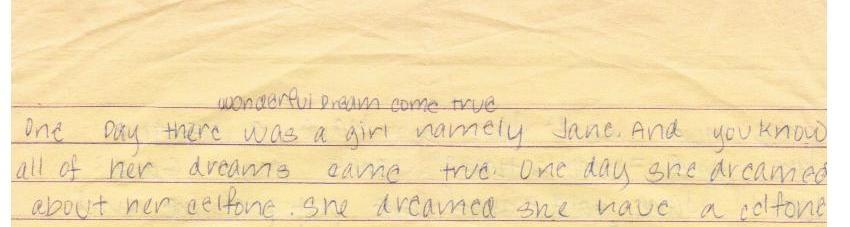 wonderful Dream come true
One Day there was a girl namely Jane. And you know
all of her dreams came true. One day she dreamed
about her celfone. She dreamed she have a celfone